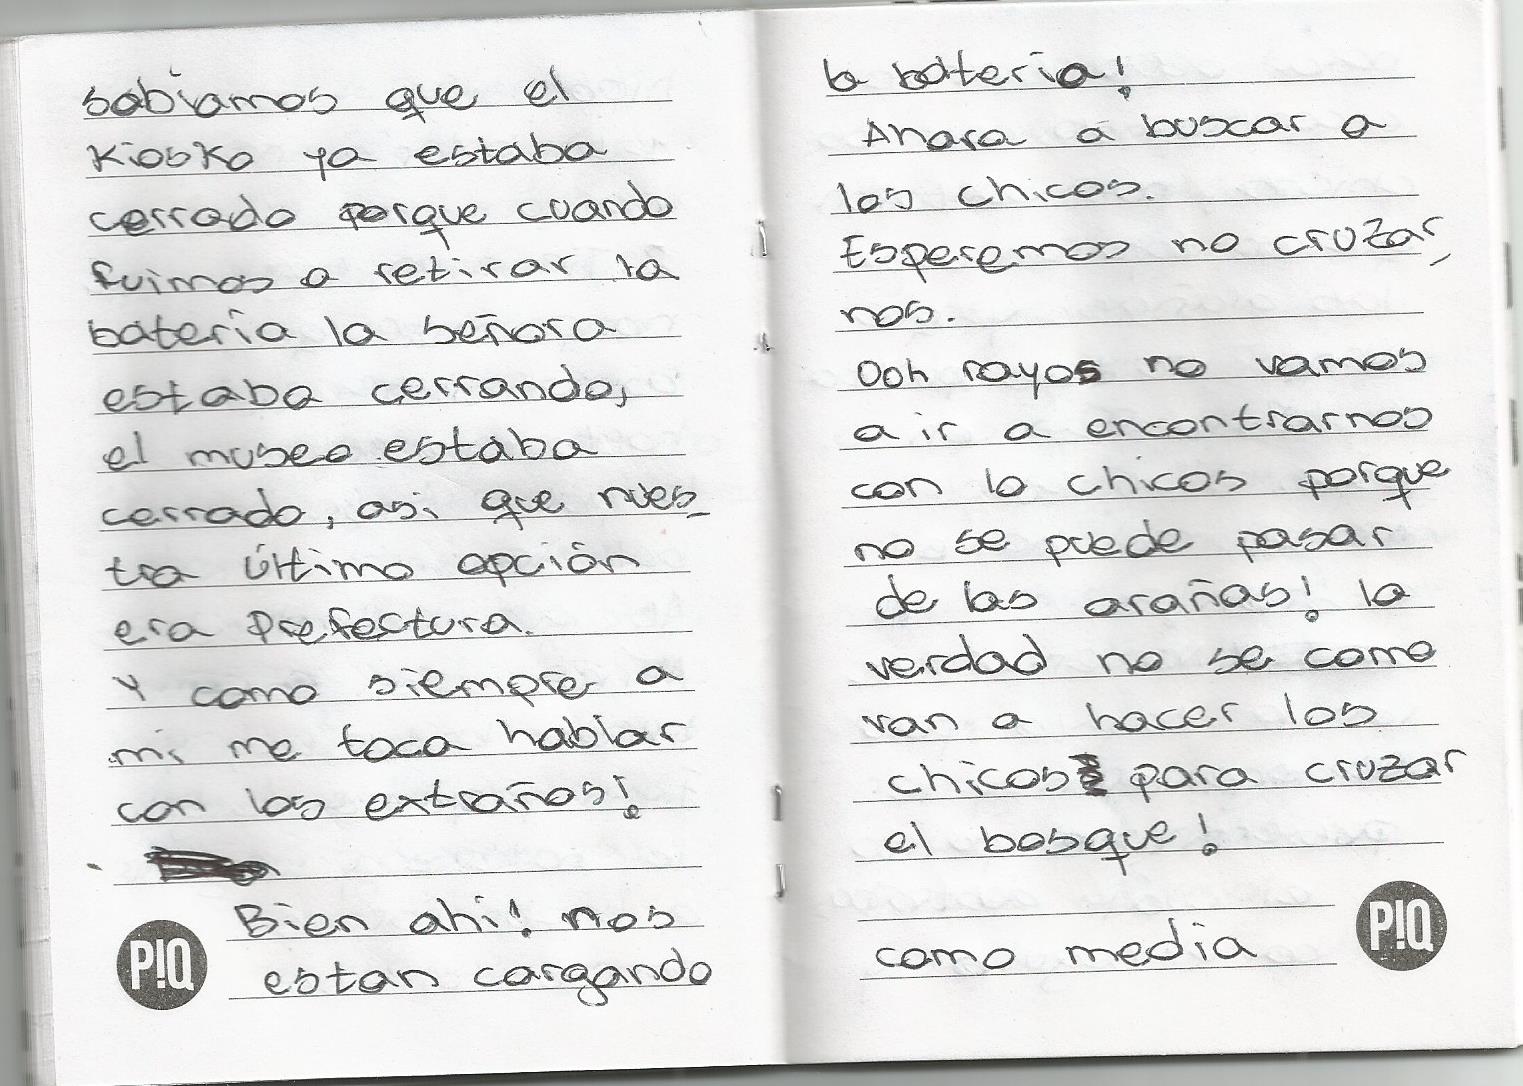 sabíamos que el
Kiosko ya estaba
cerrado porque cuando
fuimos a retirar la
batería la señora
estaba cerrando,
el museo estaba
cerrado, asi que nues-
tra último opción
era Prefectura.
Y como siempre a
mi me toca hablar
con los extraños!
Bien ahi! nos
estan cargando
P!Q
la bateria!
Ahora a buscar a
los chicos.
Esperemos no cruzar,
nos.
Ooh rayos no vamos
a ir a encontrarnos
con lo chicos porque
no se puede pasar
de las arañas! la
verdad no se como
van a hacer los
chicos para cruzar
el bosque!
como media
P!Q